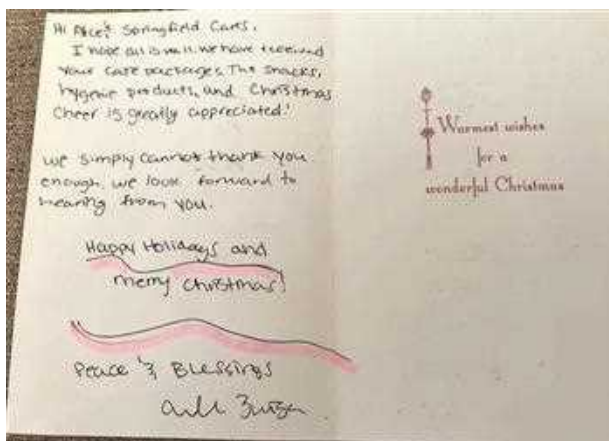 Hi Alice & Springfield Cares,
I hope all is well. we have received
your care packages. The snacks,
hygiene products, and Christmas
Cheer is greatly appreciated!
we simply cannot thank you
enough. we look forward to
hearing from you.
Happy Holidays and
merry Christmas!
Peace & Blessings
Warmest wishes
for a
wonderful Christmas